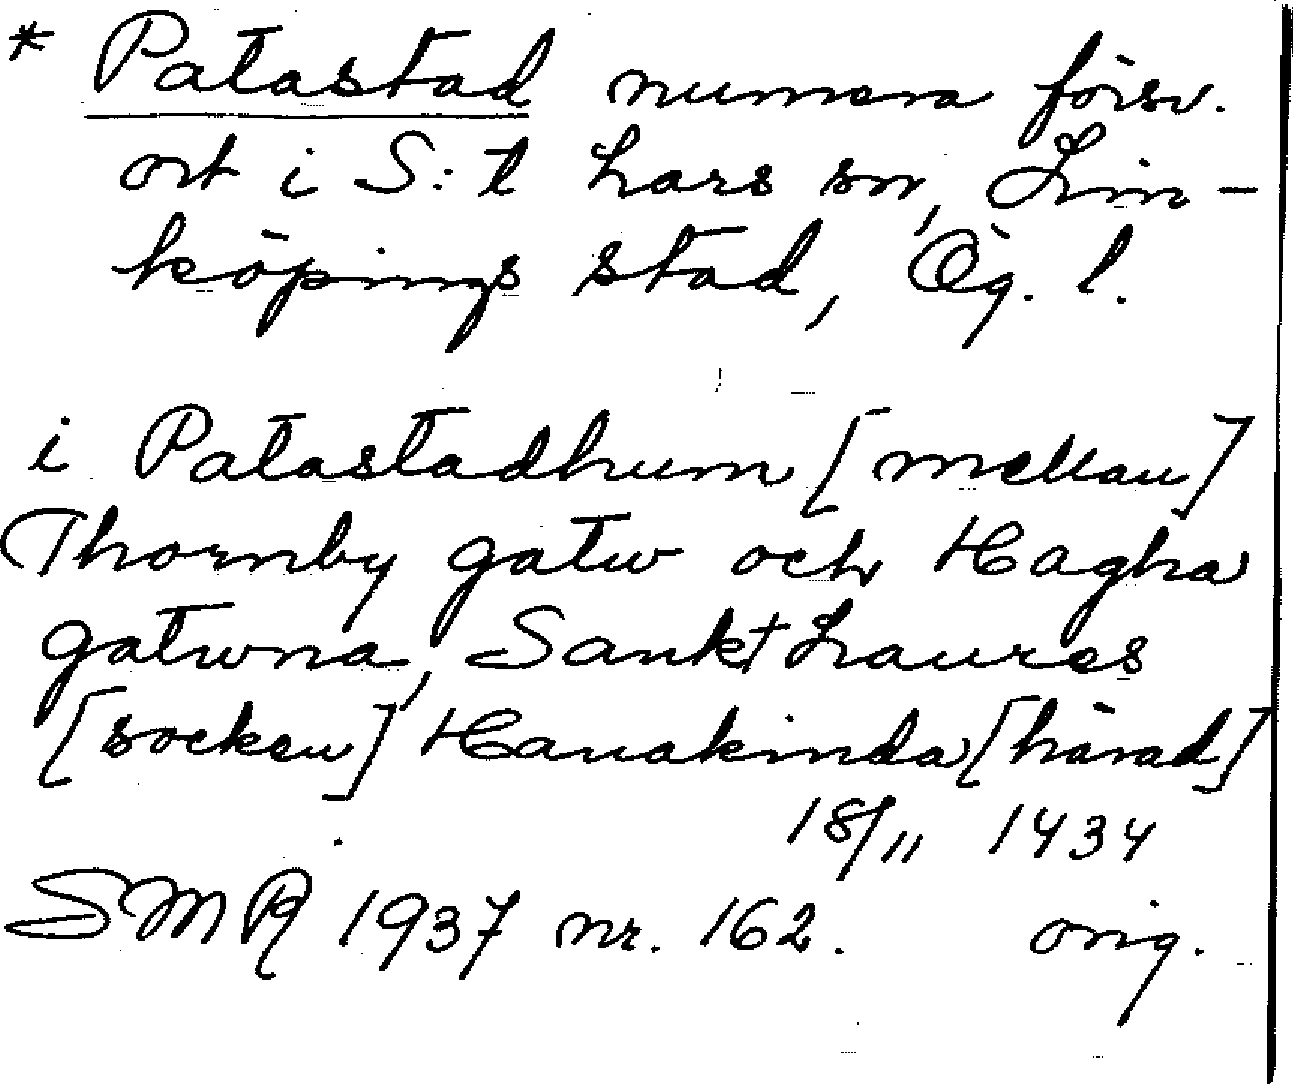 * Patastad numera försv.
ort i S:t Lars sn, Lin-
köpings stad, Ög. l.
i Patastadhum [mellan]
Thornby gatw och Hagha
gatwna, Sankt Laures
[socken] Hanakinda [härad]
18/11 1434
SMR 1937 nr. 162. orig.